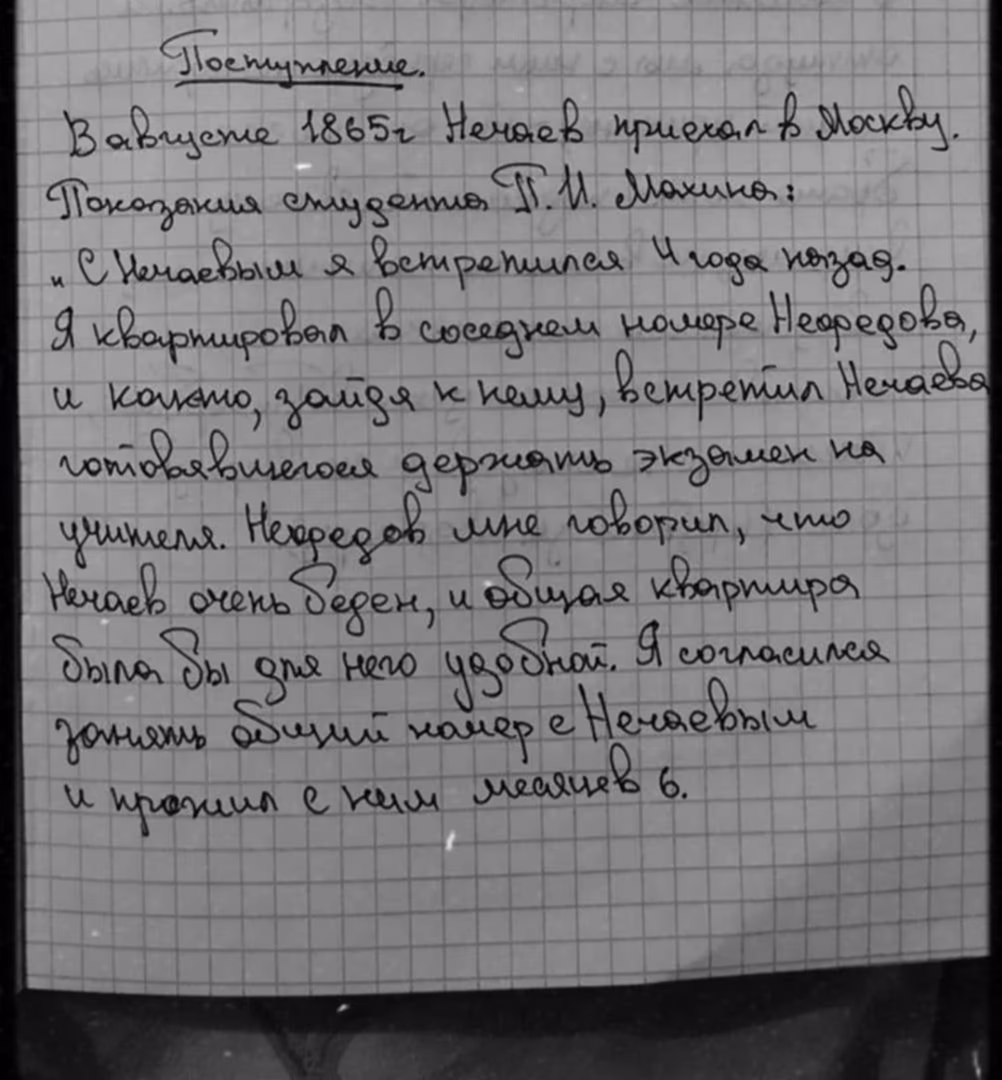 Поступление.
В августе 1865г Нечаев приехал в Москву.
Показания студента П. И. Махина:
„С Нечаевым я встретился 4 года назад.
Я квартировал в соседнем номере Нефредова,
и как-то, зайдя к нему, встретил Нечаева
готовявшегося держать экзамен на
учителя. Нефредов мне говорил, что
Нечаев очень беден, и общая квартира
была бы для него удобной. Я согласился
занять общий номер с Нечаевым
и прожил с ним месяцев 6.